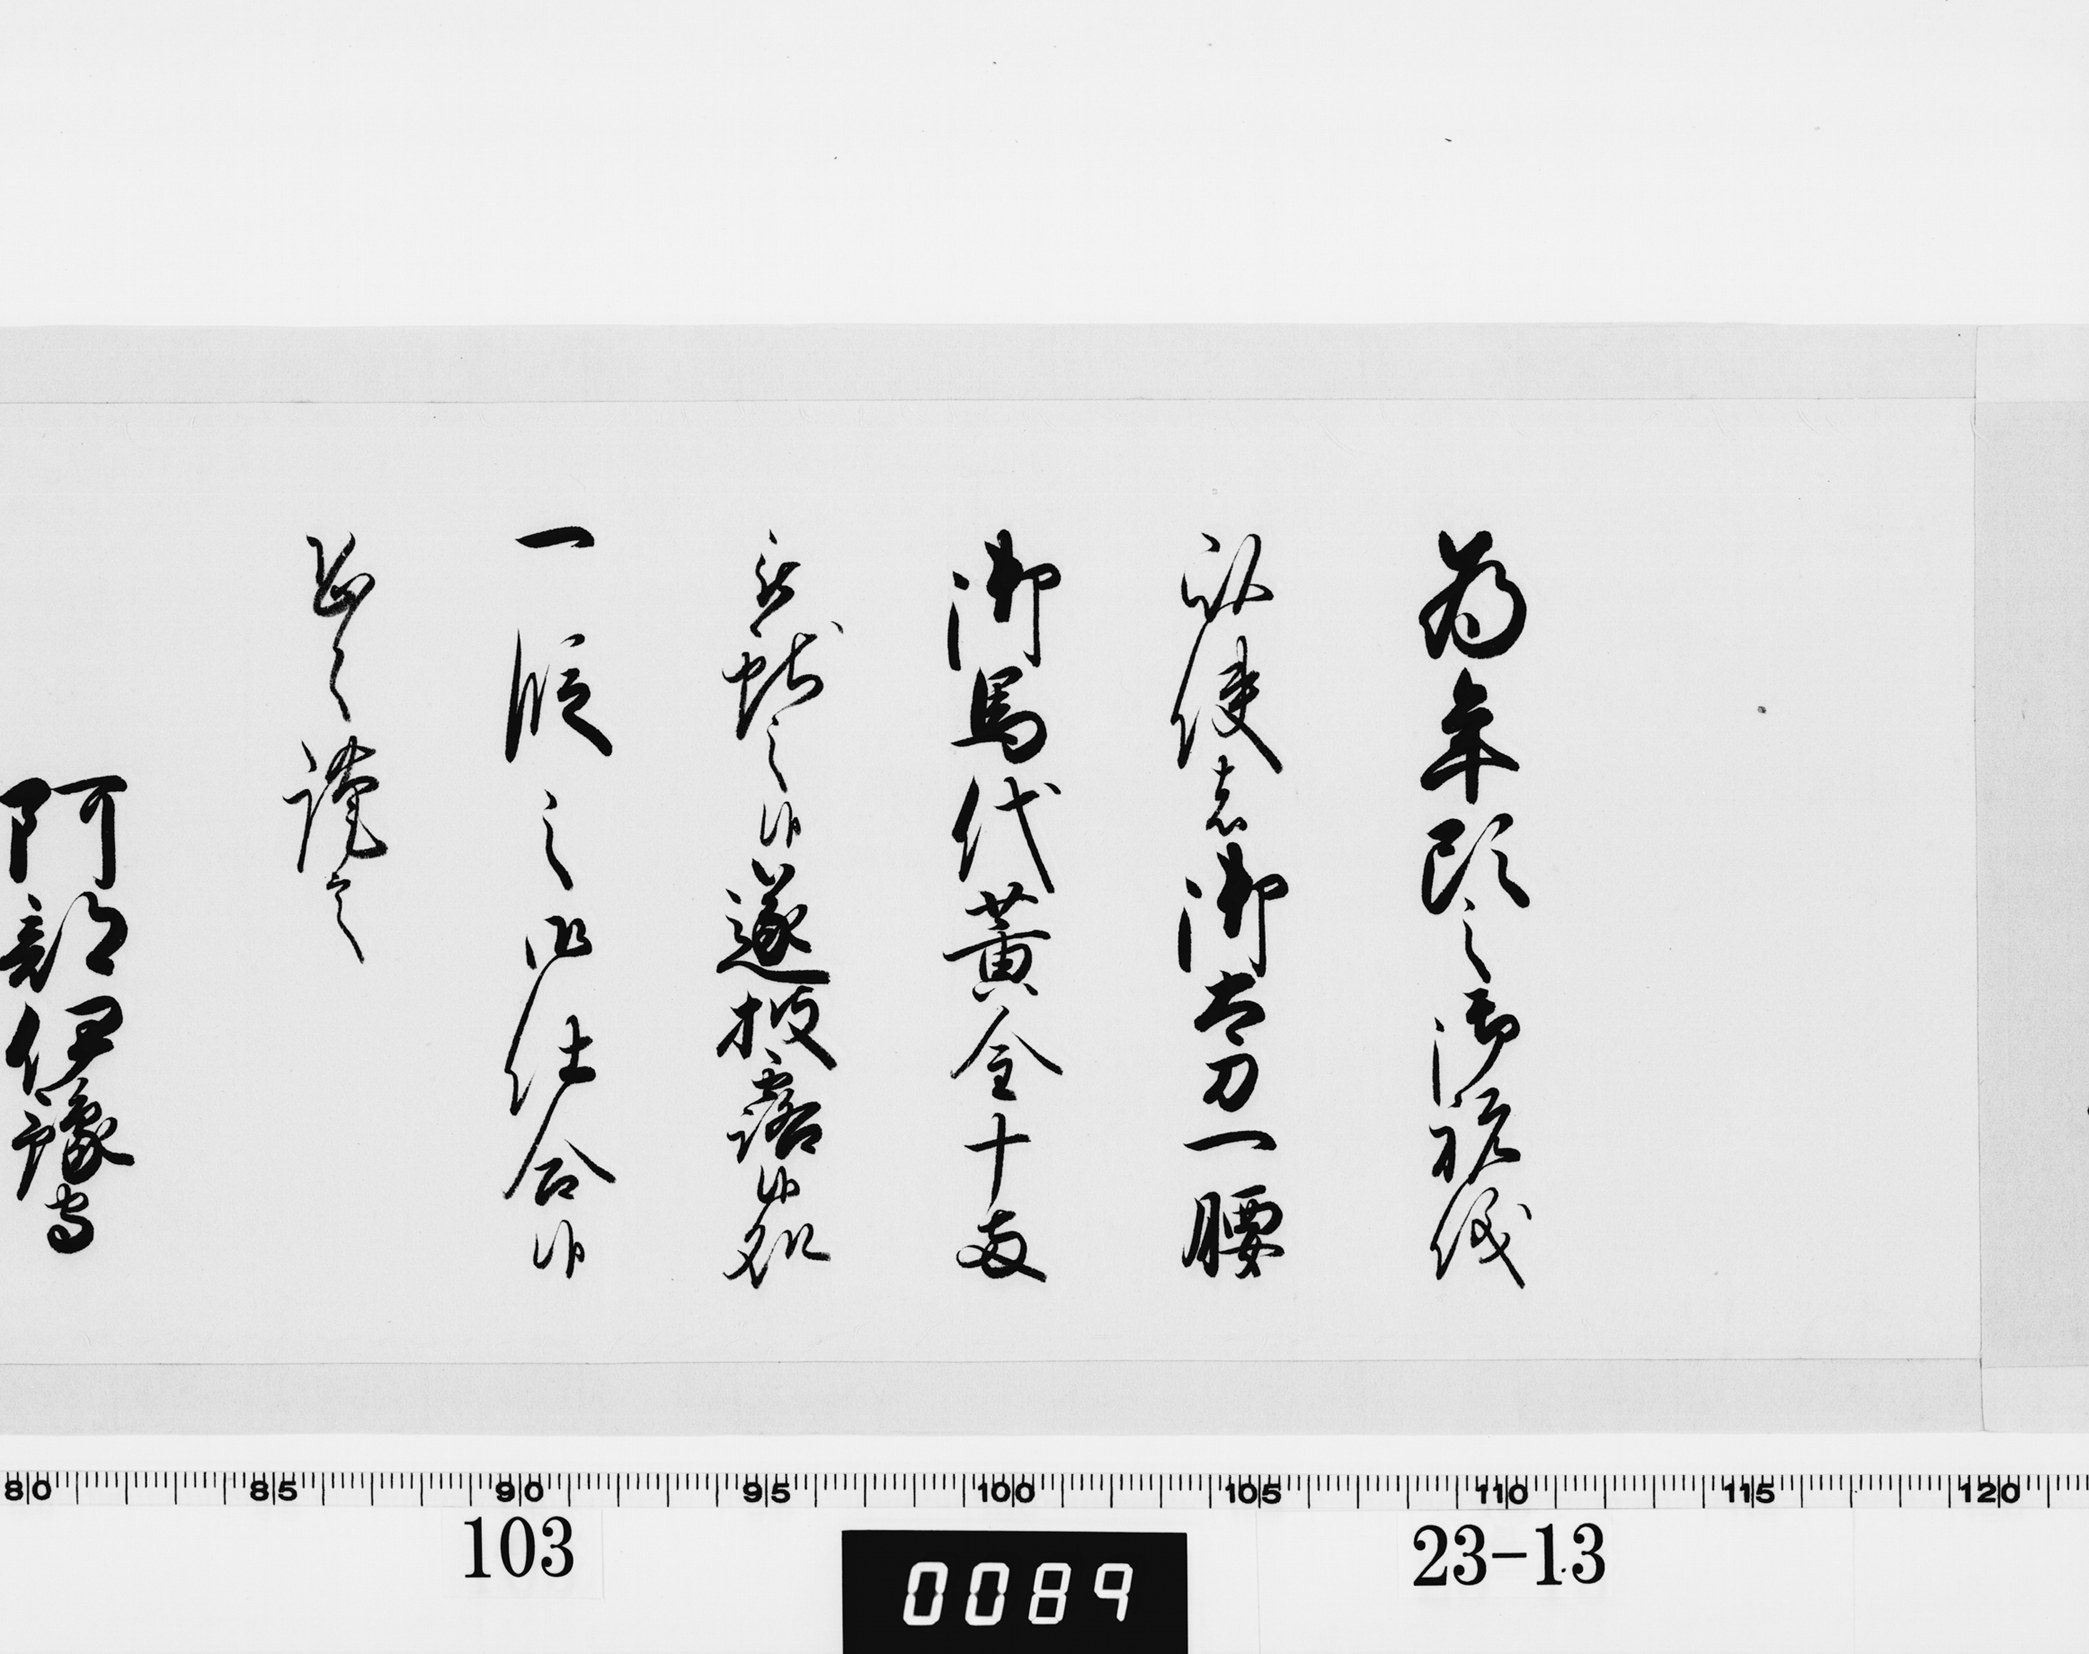 為年頭之御祝儀
以使者御太刀一腰
御馬代黄金十両
被献之候遂披露候処
一段之御仕合候
恐々謹言
阿部伊豫守
80 85 90 95 100 105 110 115 120
103
0089
23-13